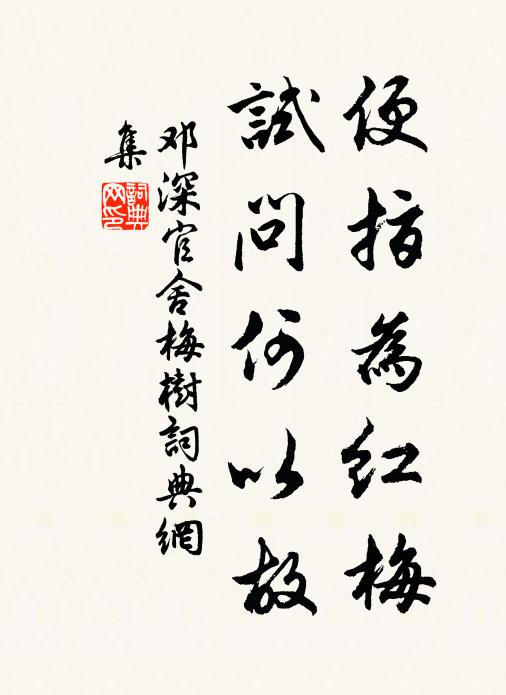 便指為紅梅
試問何以故
邓深官舍梅樹詞典網
集
詞典
网印